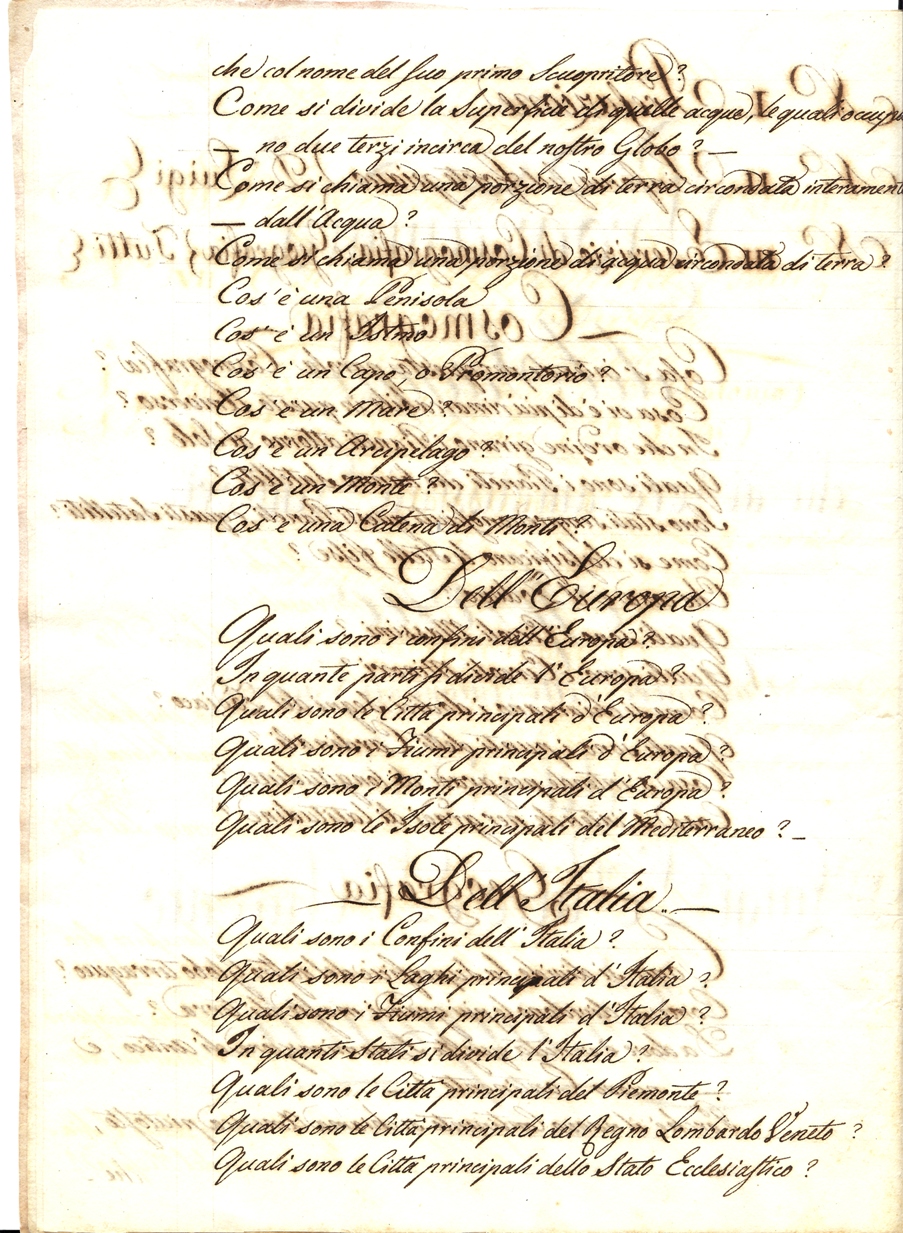 che col nome del suo primo Scuopritore?
Come si divide la Superficie di quelle acque, le quali occupa
— no due terzi incirca del nostro Globo? —
Come si chiama una porzione di terra circondata interament
— dall'Acqua?
Come si chiama una porzione di acqua circondata di terra?
Cos'è una Penisola
Cos'è un Istmo
Cos'è un Capo, o Promontorio?
Cos'è un Mare?
Cos'è un Arcipelago?
Cos'è un Monte?
Cos'è una Catena di Monti?
Dell'Europa
Quali sono i confini dell'Europa?
In quante parti si divide l'Europa?
Quali sono le Città principali d'Europa?
Quali sono i Fiumi principali d'Europa?
Quali sono i Monti principali d'Europa?
Quali sono le Isole principali del Mediterraneo? —
Dell'Italia. —
Quali sono i Confini dell'Italia?
Quali sono i Laghi principali d'Italia?
Quali sono i Fiumi principali d'Italia?
In quanti Stati si divide l'Italia?
Quali sono le Città principali del Piemonte?
Quali sono le Città principali del Regno Lombardo Veneto?
Quali sono le Città principali dello Stato Ecclesiastico?